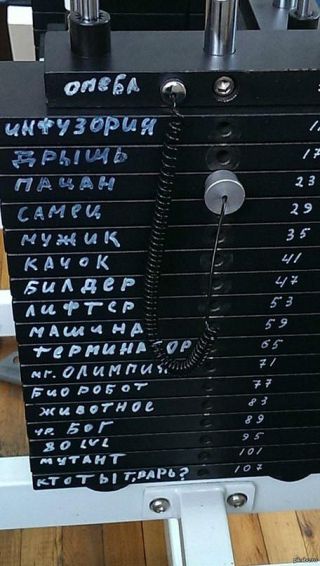 ОМЕБА
ИНФУЗОРИЯ
ДРЫЩЬ 17
ПАЦАН 23
САМЕЦ 29
МУЖИК 35
КАЧОК 41
БИЛДЕР 47
ЛИФТЕР 53
МАШИНА 59
ТЕРМИНАТОР 65
ОЛИМПИЯ 71
БИОРОБОТ 77
ЖИВОТНОЕ 83
БОГ 89
80 LVL 95
МУТАНТ 101
КТО ТЫ ТВАРЬ? 107